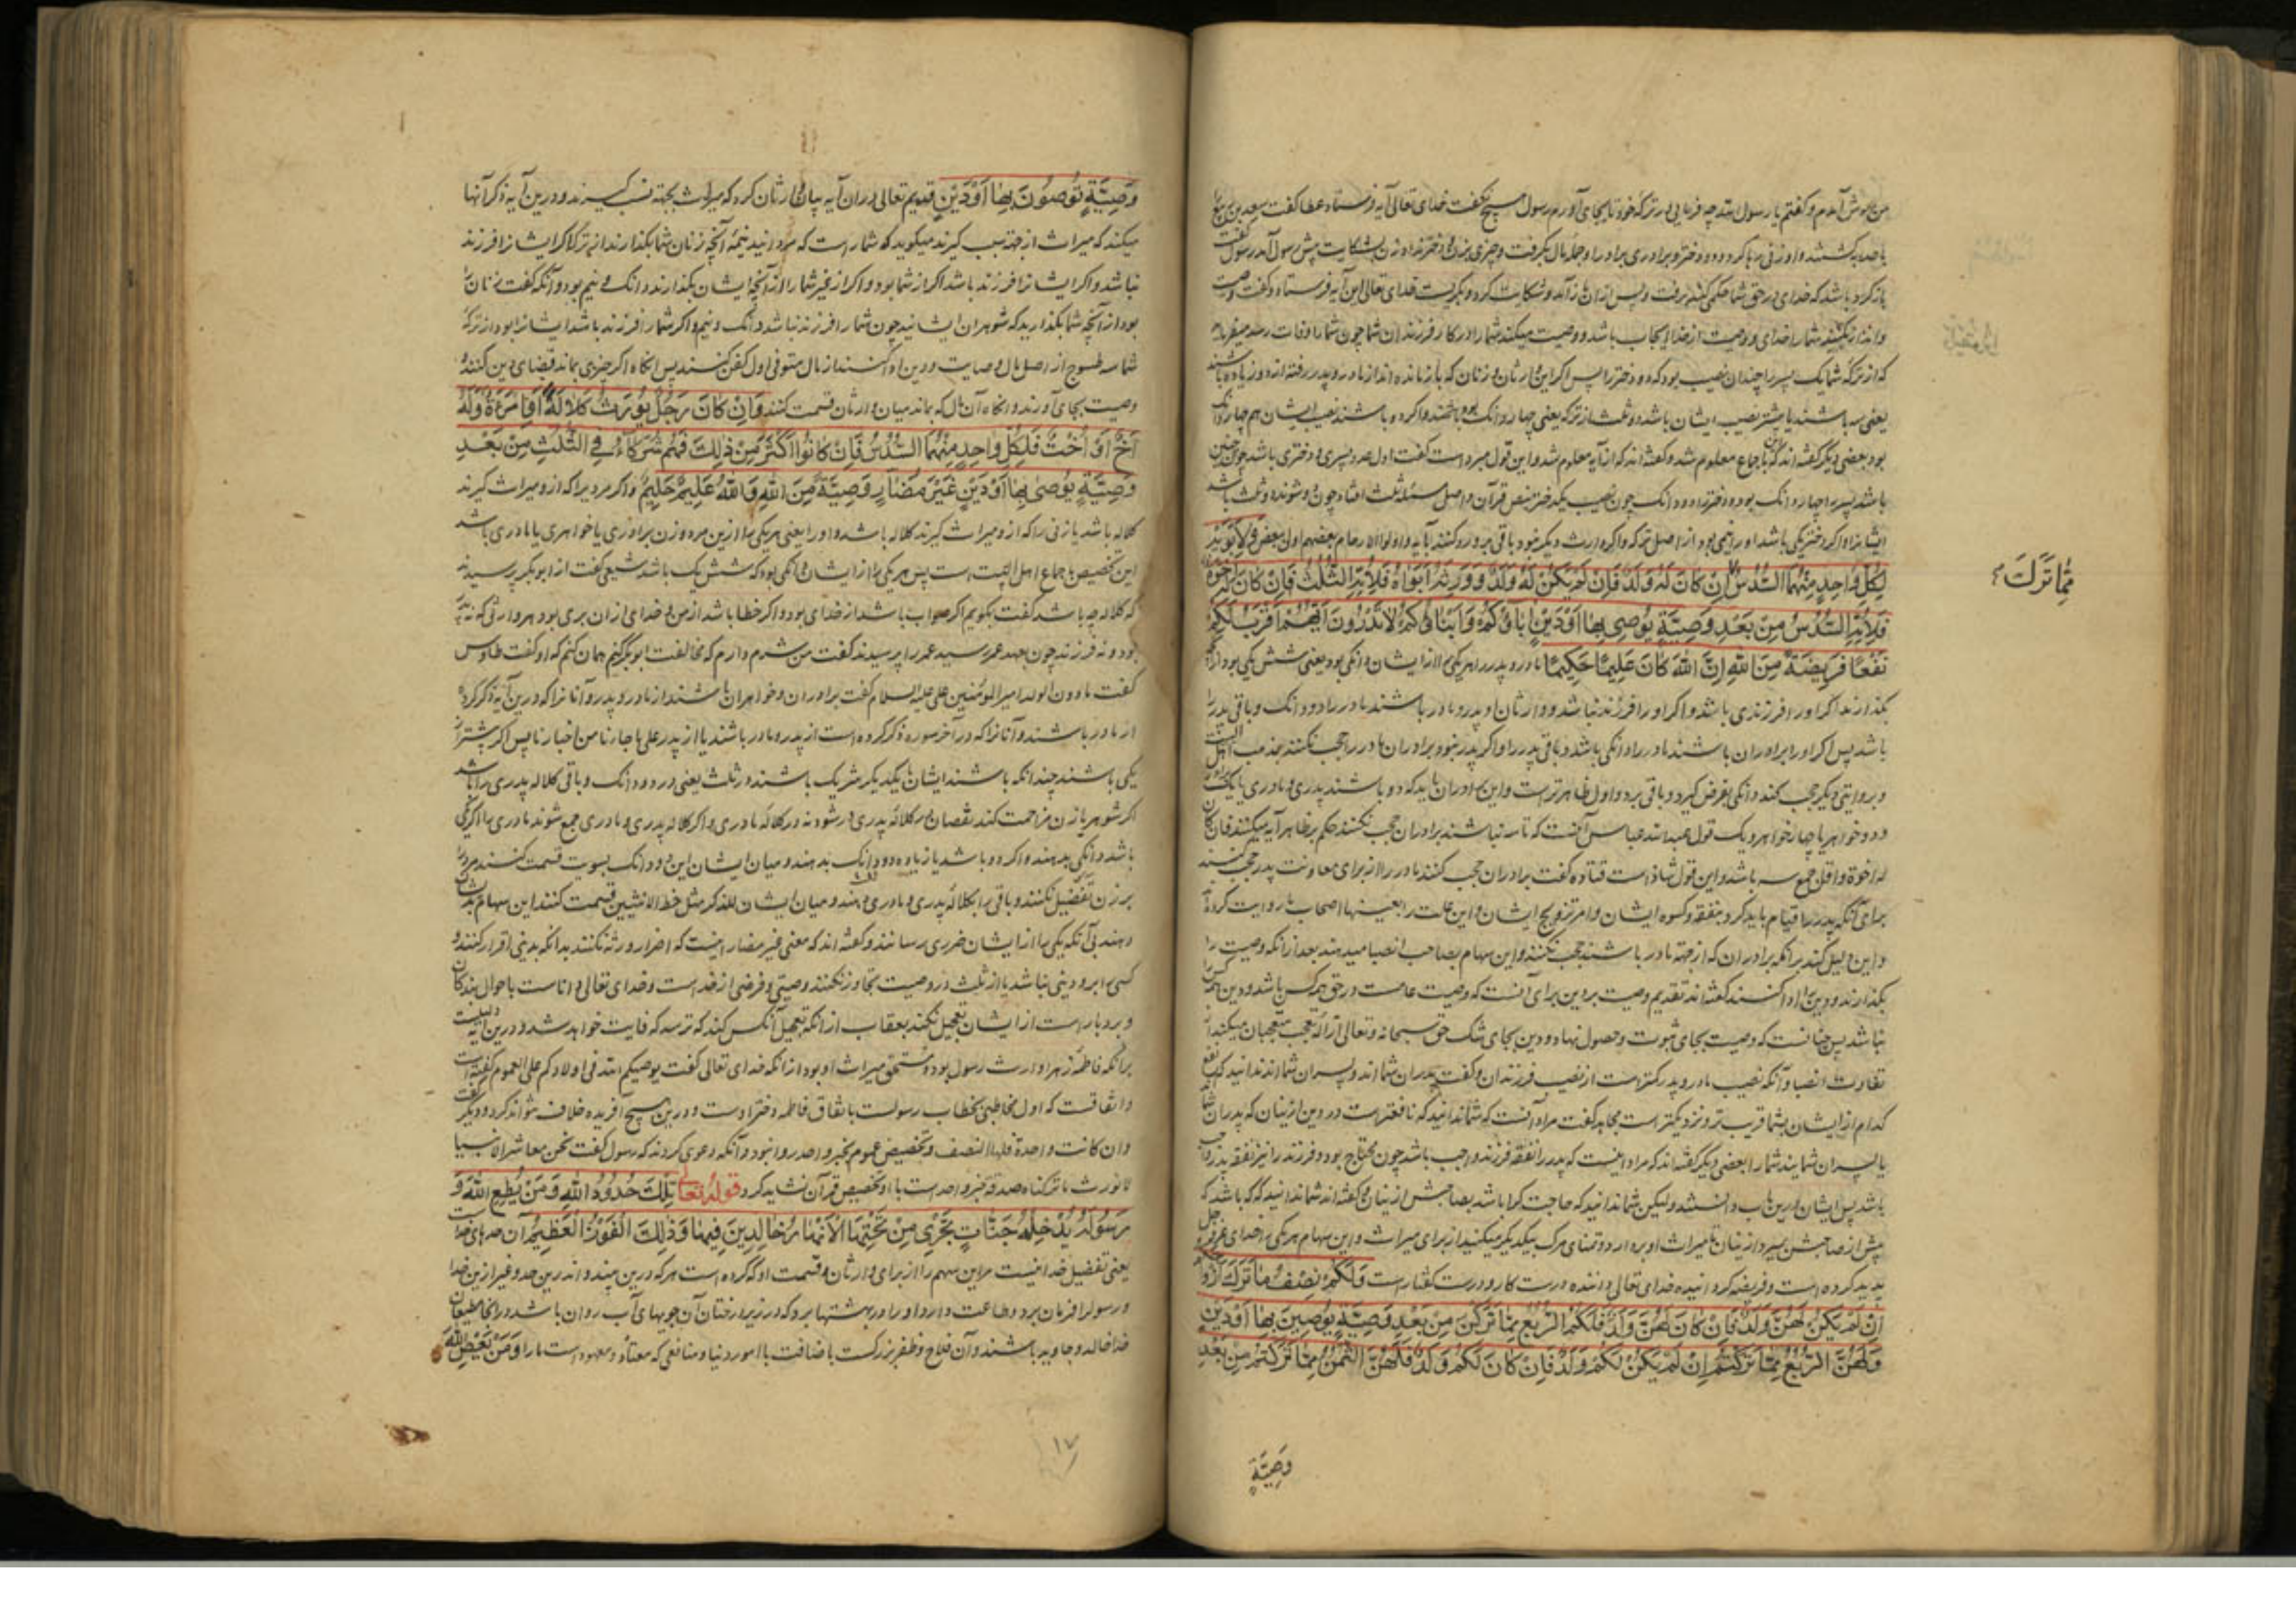 من بهوش آمدم و گفتم یا رسول الله چه فرمایی در ترکهٔ خود تا بجای آورم رسول هیچ نگفت خدای تعالی آیه فرستاد عطا گفت سعد بن ربیع
با حد بکشتند و او زنی رها کرد و دو دختر و برادری برادر او جمله مال بگرفت و چیزی بزن و دختر نداد زن بشکایت پیش رسول آمد رسول گفت
باز گرد باشد که خدای در حق شما حکمی کند برفت و پس ازان باز آمد و شکایت کرد و بگریست خدای تعالی این آیه فرستاد و گفت وصیت
شما را خدای و وصیت از خدا ایجاب باشد و وصیت میکند شما را در کار فرزندان شما چون شما را وفات رسد میفرماید
که از ترکهٔ شما یک پسر را چندان نصیب بود که دو دختر را پس اگر این وارثان زنان که باز مانده اند از مادر و پدر رفته اند دو زیاده باشند
یعنی سه باشند یا بیشتر نصیب ایشان باشد دو ثلث از ترکه یعنی چهار دانگ و اگر دو باشند نصیب ایشان هم چهار دانگ
بود بعضی دیگر گفته اند که این باجماع معلوم شد و گفته اند که از آیه معلوم شد و این قول مبرد است گفت اول عدد پسری و دختری باشد چون چنین
باشد پسر را چهار دانگ بود و دختر را دو دانگ چون نصیب یک دختر بنص قرآن و اصل مسئله ثلث افتاد چون دو شوند دو ثلث باشد
ایشانرا و اگر دختر یکی باشد او را نیمی بود از اصل ترکه و اگر وارث دیگر نبود باقی برو رد کنند بآیه و اولوا الارحام بعضهم اولی ببعض وَلِاَبَوَیْهِ
لِکُلِّ وَاحِدٍ مِنْهُمَا السُّدُسُ اِنْ کَانَ لَهُ وَلَدٌ فَاِنْ لَمْ یَکُنْ لَهُ وَلَدٌ وَوَرِثَهُ اَبَوَاهُ فَلِاُمِّهِ الثُّلُثُ فَاِنْ کَانَ لَهُ اِخْوَةٌ
مِمَّا تَرَکَ
فَلِاُمِّهِ السُّدُسُ مِنْ بَعْدِ وَصِیَّةٍ یُوصِی بِهَا اَوْ دَیْنٍ اٰبَاؤُکُمْ وَاَبْنَاؤُکُمْ لَا تَدْرُونَ اَیُّهُمْ اَقْرَبُ لَکُمْ
نَفْعًا فَرِیضَةً مِنَ اللهِ اِنَّ اللهَ کَانَ عَلِیمًا حَکِیمًا مادر و پدر را هر یکی را از ایشان دانگی بود یعنی شش یکی بود از آنچه
بگذارند اگر او را فرزندی باشد و اگر او را فرزند نباشد و وارثان او پدر و مادر باشند مادر را دو دانگ و باقی پدر را
باشد پس اگر او را برادران باشند مادر را دانگی باشد و باقی پدر را و اگر پدر نبود برادران مادر را حجب نکنند بمذهب اهل البیت
و بروایتی دیگر حجب کند دانگی بفرض گیرد و باقی برد و اول ظاهرتر است و این برادران باید که دو باشند پدری و مادری یا یک برادر
و دو خواهر یا چهار خواهر و یک قول عبدالله عباس آنست که تا سه نباشند برادران حجب نکنند حکم بر ظاهر آیه میکنند فان کان
له اخوة و اقل جمع سه باشد و این قول شاذ است قتاده گفت برادران حجب کنند مادر را از برای معاونت پدر حجب کنند
برای آنکه پدر را قیام باید کرد بنفقه و کسوه ایشان و امر تزویج ایشان و این علت را بعینها اصحاب ما روایت کرده
و این دلیل کند بر آنکه برادران که از جهة مادر باشند حجب نکنند و این سهام بصاحب انصبا میدهند بعد از آنکه وصیت را
بگذارند و دین را ادا کنند گفته اند تقدیم وصیت بر دین برای آنست که وصیت عامست در حق همه کس باشد و دین همه کس را
نباشد پس چنانست که وصیت بجای ثبوت و حصول نهاد و دین بجای شک حق سبحانه و تعالی ازاله تعجب متعجبان میکند از
تفاوت انصبا و آنکه نصیب مادر و پدر کمتر است از نصیب فرزندان و گفت پدران شما اند و پسران شما اند ندانید که نفع
کدام از ایشان بشما قریب تر و نزدیکتر است مجاهد گفت مراد آنست که شما ندانید که نافعتر است در دین از ینان که پدران شما
یا پسران شمایند شما را بعضی دیگر گفته اند که مراد اینست که پدر را نفقه فرزند واجب باشد چون محتاج بود و فرزند را نیز نفقه پدر واجب
باشد پس ایشان درین باب دانستند ولیکن شما ندانید که حاجت کرا باشد بصاحبش از ینان و گفته اند شما ندانید که که باشد که
پیش از صاحبش بمیرد از ینان تا میراث او بردارد و تمنای مرگ یکدیگر میکنید از برای میراث و این سهام هر یکی را خدای عز و جل
پدید کرده است و فریضه گردانیده خدای تعالی داننده درست کار و درست گفتار است وَلَکُمْ نِصْفُ مَا تَرَکَ اَزْوَاجُکُمْ
اِنْ لَمْ یَکُنْ لَهُنَّ وَلَدٌ فَاِنْ کَانَ لَهُنَّ وَلَدٌ فَلَکُمُ الرُّبُعُ مِمَّا تَرَکْنَ مِنْ بَعْدِ وَصِیَّةٍ یُوصِینَ بِهَا اَوْ دَیْنٍ
وَلَهُنَّ الرُّبُعُ مِمَّا تَرَکْتُمْ اِنْ لَمْ یَکُنْ لَکُمْ وَلَدٌ فَاِنْ کَانَ لَکُمْ وَلَدٌ فَلَهُنَّ الثُّمُنُ مِمَّا تَرَکْتُمْ مِنْ بَعْدِ
وَصِیَّةٍ
وَصِیَّةٍ تُوصُونَ بِهَا اَوْ دَیْنٍ قدیم تعالی دران آیه بیان وارثان کرد که میراث بجهة نسب گیرند و درین آیه ذکر آنها
میکند که میراث از جهة سبب گیرند میگوید که شما راست که مردانید نیمهٔ آنچه زنان شما بگذارند از ترکه اگر ایشانرا فرزند
نباشد و اگر ایشانرا فرزند باشد اگر از شما بود و اگر از غیر شما را از آنچه ایشان بگذارند دانگ و نیم بود و آنگه گفت زنان را
بود از آنچه شما بگذارید که شوهران ایشانید چون شما را فرزند نباشد دانگ و نیم و اگر شما را فرزند باشد ایشانرا بود از ترکهٔ
شما سه طسوج از اصل مال و وصایت و دین ادا کنند از مال متوفی اول کفن کنند پس آنگاه اگر چیزی بماند قضای دین کنند و
وصیت بجای آورند و آنگاه آن مال که بماند میان وارثان قسمت کنند وَاِنْ کَانَ رَجُلٌ یُورَثُ کَلَالَةً اَوِ امْرَاَةٌ وَلَهُ
اَخٌ اَوْ اُخْتٌ فَلِکُلِّ وَاحِدٍ مِنْهُمَا السُّدُسُ فَاِنْ کَانُوا اَکْثَرَ مِنْ ذٰلِکَ فَهُمْ شُرَکَاءُ فِی الثُّلُثِ مِنْ بَعْدِ
وَصِیَّةٍ یُوصٰی بِهَا اَوْ دَیْنٍ غَیْرَ مُضَارٍّ وَصِیَّةً مِنَ اللهِ وَاللهُ عَلِیمٌ حَلِیمٌ و اگر مردیرا که ازو میراث گیرند
کلاله باشد یا زنی را که ازو میراث گیرند کلاله باشد و او را یعنی هر یکی را ازین مرد و زن برادری یا خواهری یا مادری باشد
این تخصیص باجماع اهل البیت است پس هر یکی را از ایشان دانگی بود که شش یک باشد شعبی گفت از ابوبکر پرسیدند
که کلاله چه باشد گفت بگویم اگر صواب باشد از خدای بود و اگر خطا باشد از من و خدای ازان بری بود هر وارثی که نه پدر
بود و نه فرزند چون بعهد عمر رسید عمر را پرسیدند گفت من شرم دارم که مخالفت ابوبکر کنم همان گویم که او گفت طاوس
گفت مادون الولد امیر المؤمنین علی علیه السلام گفت برادران و خواهران باشند از مادر و پدر و آنانرا که درین آیه ذکر کرد
از مادر باشند و آنانرا که در آخر سوره ذکر کرده است از پدر و مادر باشند یا از پدر علی ما جاءنا من اخبارنا پس اگر بیشتر از
یکی باشند چندانکه باشند ایشان با یکدیگر شریک باشند در ثلث یعنی در دو دانگ و باقی کلاله پدری را باشد
اگر شوهر یا زن مزاحمت کند نقصان در کلاله پدری در شود نه در کلالهٔ مادری و اگر کلاله پدری و مادری جمع شوند مادری را اگر یکی
باشد دانگی بدهند و اگر دو باشد یا زیاده دو دانگ بدهند و میان ایشان این دو دانگ بسویت قسمت کنند مرد را
بر زن تفضیل نکنند و باقی را بکلالهٔ پدری و مادری دهند و میان ایشان للذکر مثل حظ الانثیین قسمت کنند این سهام بدیشان
دهند بی آنکه یکی را از ایشان ضرری رسانند و گفته اند که معنی غیر مضار اینست که اضرار ورثه نکنند بدانکه بدینی اقرار کنند و
کسی را برو دینی نباشد یا از ثلث در وصیت تجاوز نکنند وصیتی و فرضی از خداست و خدای تعالی داناست باحوال بندگان
و بردبار است از ایشان تعجیل نکند بعقاب از آنکه تعجیل آنکس کند که ترسد که فایت خواهد شد و درین آیه دلیلیست
بر آنکه فاطمهٔ زهرا وارث رسول بود و مستحق میراث او بود از آنکه خدای تعالی گفت یوصیکم الله فی اولادکم علی العموم گفته است
و اتفاقست که اول مخاطبی بخطاب رسولست باتفاق فاطمه دختر اوست و درین هیچ آفریده خلاف نتواند کرد و دیگر گفت
وان کانت واحدة فلها النصف و تخصیص عموم بخبر واحد روا نبود و آنکه دعوی کردند که رسول گفت نحن معاشر الانبیا
لا نورث ما ترکناه صدقة خبر واحد است با او تخصیص قرآن نشاید کرد قوله تعالی تِلْکَ حُدُودُ اللهِ وَمَنْ یُطِعِ اللهَ وَ
رَسُولَهُ یُدْخِلْهُ جَنَّاتٍ تَجْرِی مِنْ تَحْتِهَا الْاَنْهَارُ خَالِدِینَ فِیهَا وَذٰلِکَ الْفَوْزُ الْعَظِیمُ آن حدهای خداست
یعنی تفضیل خدا اینست مر این سهم را از برای وارثان و قسمت او که کرده است هر که درین ببندد اندرین حد و غیر ازین خدا
و رسولرا فرمان برد و طاعت دارد او را در بهشتها برد که در زیر درختان آن جویهای آب روان باشد در آنجا مطیعان
خدا خالد و جاوید باشند و آن فلاح و ظفر بزرگست باضافت با امور دنیا و منافعی که معتاد و معهود است ما را وَمَنْ یَعْصِ اللهَ
۱۷